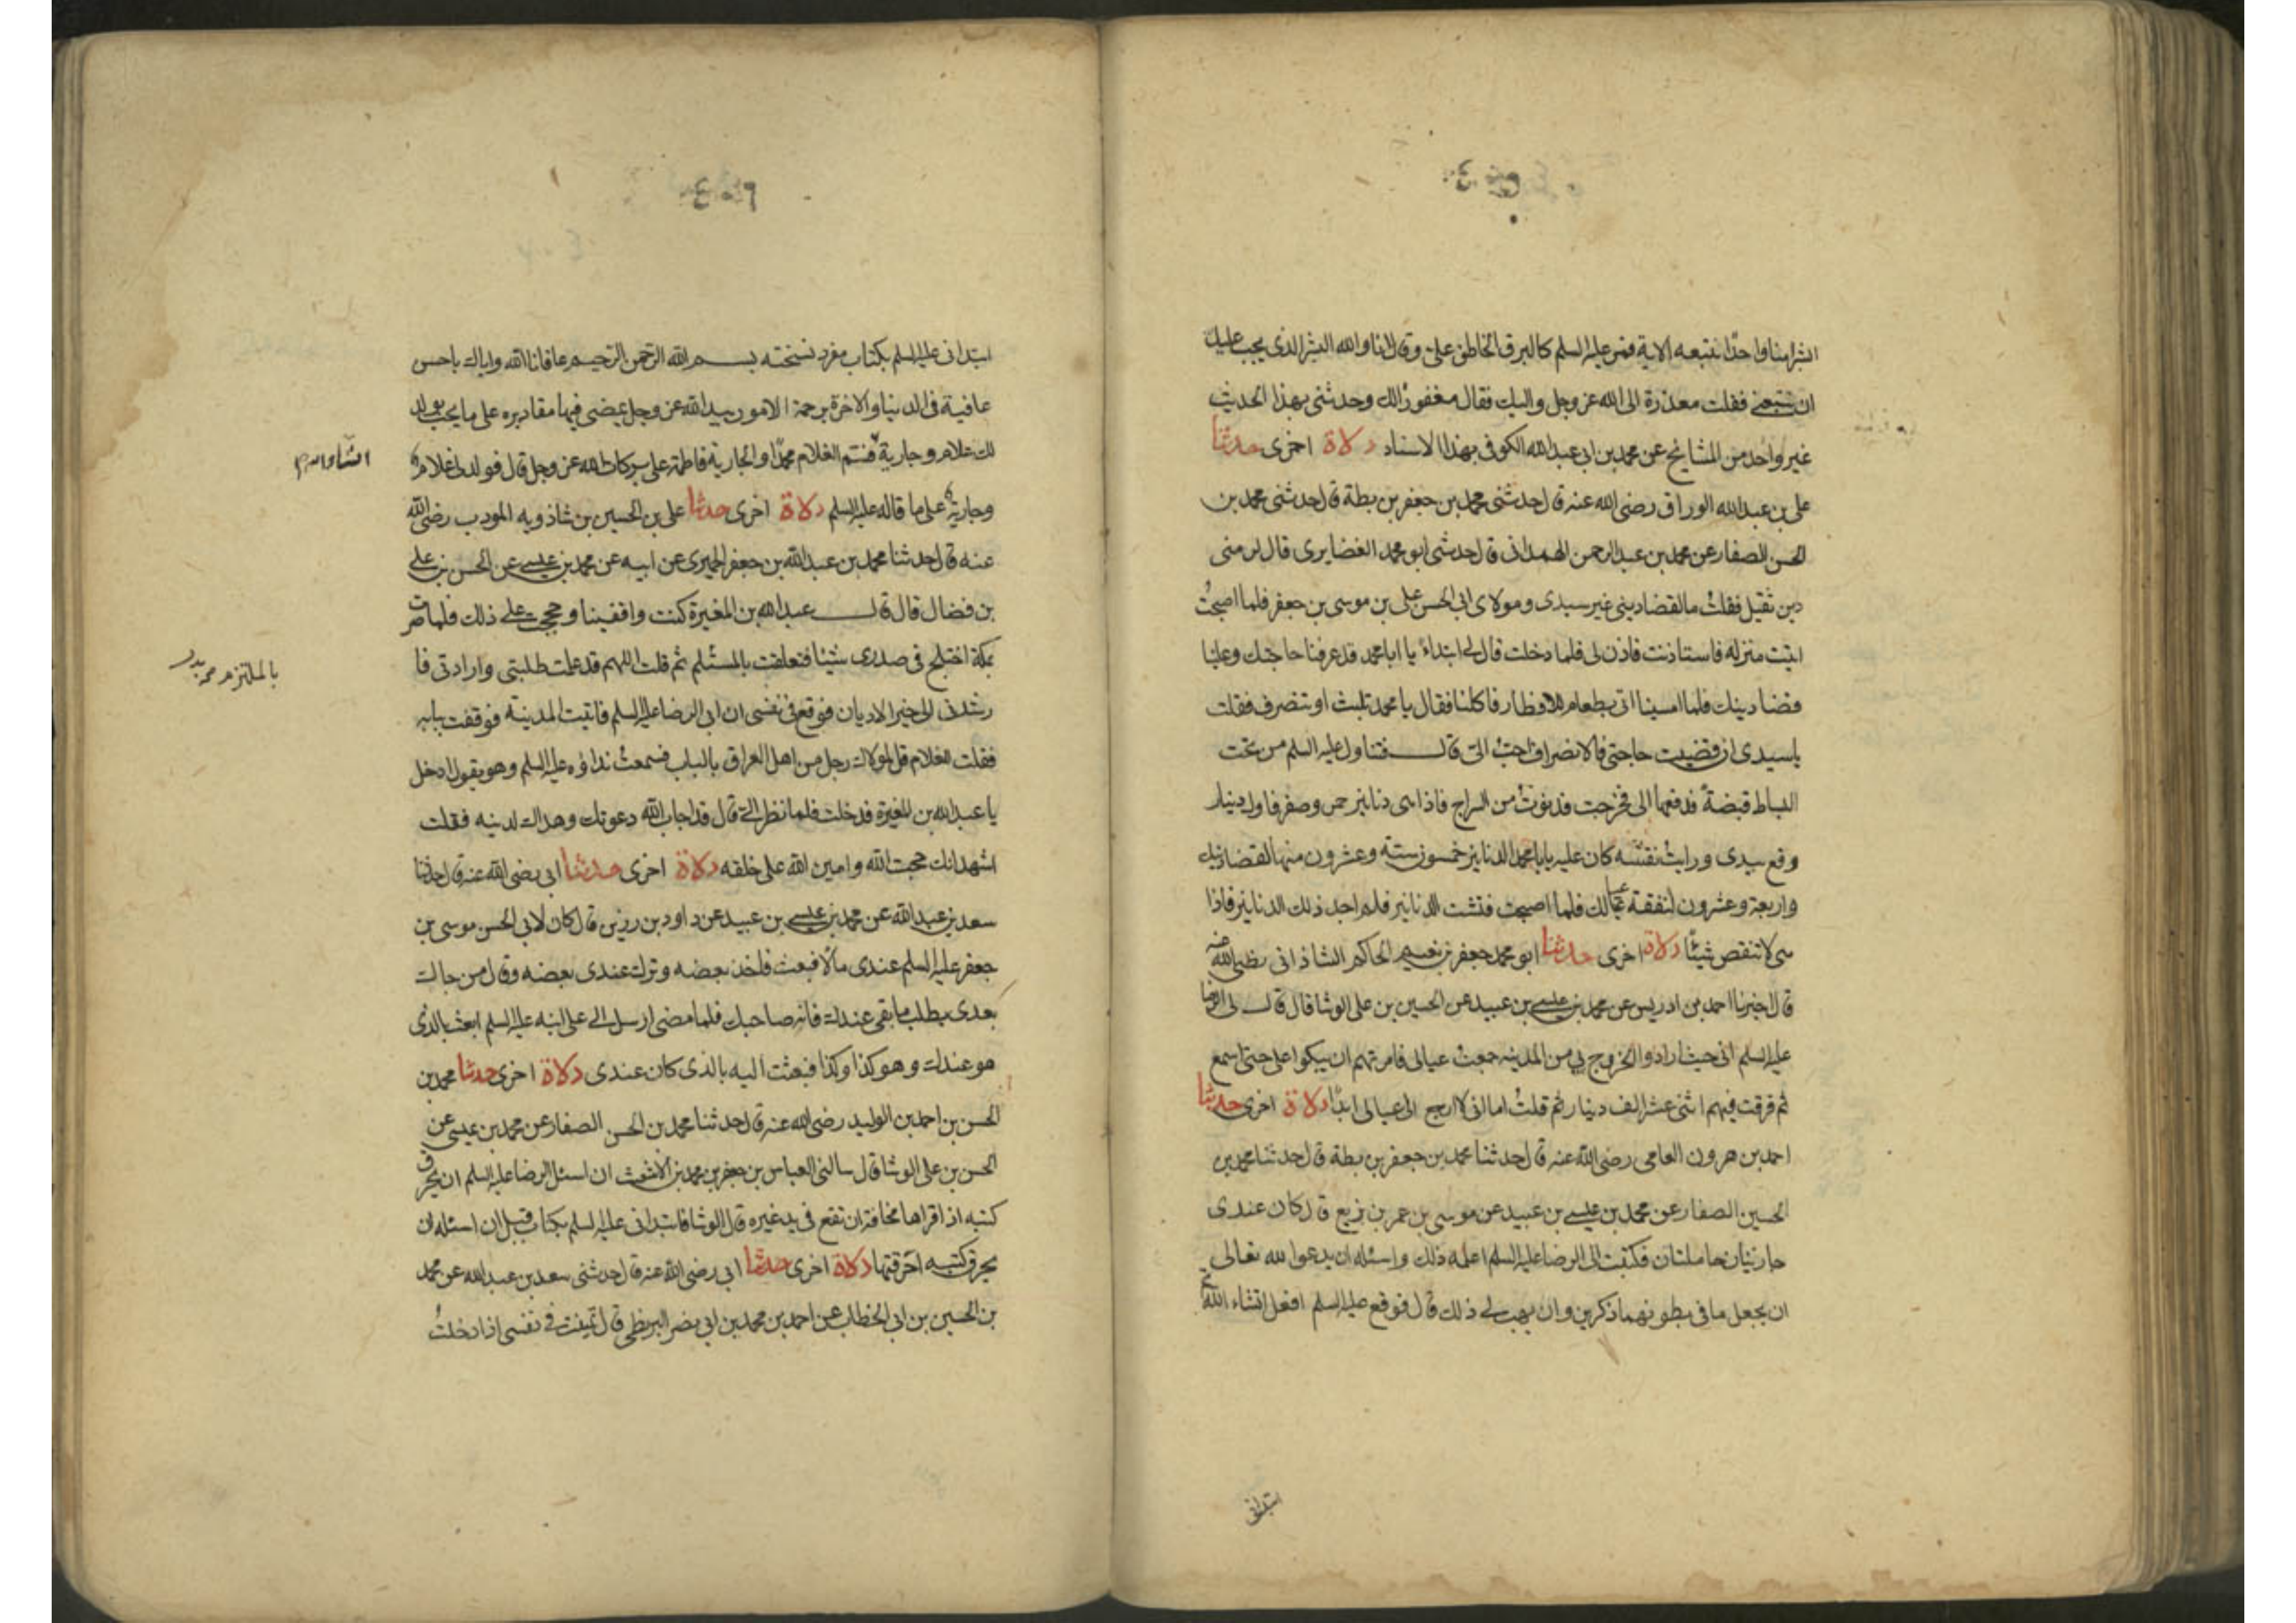 ابشرا منا واحدا نتبعه الاية فمر عليه السلم كالبرق الخاطف علىّ وقال انا والله البشر الذى يجب عليك
ان تتبعنى فقلت معذرة الى الله عز وجل واليك فقال مغفور لك وحدثنى بهذا الحديث
غير واحد من المشايخ عن محمد بن ابى عبد الله الكوفى بهذا الاسناد دلالة اخرى حدثنا
على بن عبد الله الوراق رضى الله عنه قال حدثنى محمد بن جعفر بن بطة قال حدثنى محمد بن
الحسن الصفار عن محمد بن عبد الرحمن الهمدانى قال حدثنى ابو محمد الغفايرى قال لزمنى
دين ثقيل فقلت ما لقضا دينى غير سيدى ومولاى ابى الحسن على بن موسى بن جعفر فلما اصبحت
اتيت منزله فاستاذنت فاذن لى فلما دخلت قال لى ابتداء يا ابا محمد قد عرفنا حاجتك وعلينا
قضا دينك فلما امسينا اتى بطعام للافطار فاكلنا فقال يا محمد تلبث او تنصرف فقلت
ياسيدى ان قضيت حاجتى فالانصراف احب الى قال فتناول عليه السلم من تحت
البساط قبضة فدفعها الى فخرجت فدنوت من السراج فاذا هى دنانير حمر وصفر فاول دينار
وقع بيدى ورايت نقشه كان عليه يا با محمد الدنانير خمسون ستة وعشرون منها لقضا دينك
واربعة وعشرون لنفقة عيالك فلما اصبحت فتشت الدنانير فلم اجد ذلك الدنانير فاذا
هى لا تنقص شيئا دلالة اخرى حدثنا ابو محمد جعفر بن نعيم الحاكم الشاذانى رضى الله عنه
قال اخبرنا احمد بن ادريس عن محمد بن عيسى بن عبيد عن الحسين بن على الوشا قال قال لى الرضا
عليه السلم انى حيث ارادوا الخروج بى من المدينه جمعت عيالى فامرتهم ان يبكوا على حتى اسمع
ثم فرقت فيهم اثنى عشر الف دينار ثم قلت اما انى لا ارجع الى عيالى ابدا دلالة اخرى حدثنا
احمد بن هرون العامى رضى الله عنه قال حدثنا محمد بن جعفر بن بطة قال حدثنا محمد بن
الحسين الصفار عن محمد بن عيسى بن عبيد عن موسى بن عمر بن بزيع قال كان عندى
جاريتان حاملتان فكتبت الى الرضا عليه السلم اعلمه ذلك واسئله ان يدعوا لله تعالى
ان يجعل ما فى بطونهما ذكرين وان يهب لى ذلك قال فوقع عليه السلم افعل انشاء الله ثم
ابتدانى
٤٠٦
ابتدانى عليه السلم بكتاب مفرد نسخته بسم الله الرحمن الرحيم عافانا الله واياك باحسن
عافية فى الدنيا والاخرة برحمة الامور بيد الله عز وجل يمضى فيها مقاديره على ما يحب يولد
لك غلام وجارية فسم الغلام محمدا والجارية فاطمة على بركات الله عز وجل قال فولد لى غلام
وجارية على ما قاله عليه السلم دلالة اخرى حدثنا على بن الحسين بن شاذويه المودب رضى الله
عنه قال حدثنا محمد بن عبد الله بن جعفر الحميرى عن ابيه عن محمد بن عيسى عن الحسن بن على
بن فضال قال قال عبد الله بن المغيرة كنت واقفينا وحججت على ذلك فلما صرت
بمكة اختلج فى صدرى شيئا فتعلقت بالمسئلم ثم قلت اللهم قد علمت طلبتى وارادتى فا
رشدنى الى خير الاديان فوقع فى نفسى ان اتى الرضا عليه السلم فاتيت المدينة فوقفت ببابه
فقلت للغلام قل لمولاك رجل من اهل العراق بالباب فسمعت نداؤه عليه السلم وهو يقول ادخل
يا عبد الله بن المغيرة فدخلت فلما نظر الى قال قد اجاب الله دعوتك وهداك لدينه فقلت
اشهد انك حجت الله وامين الله على خلقه دلالة اخرى حدثنا ابى رضى الله عنه قال حدثنا
سعد بن عبد الله عن محمد بن عيسى بن عبيد عن داود بن رزين قال كان لابى الحسن موسى بن
جعفر عليه السلم عندى مالا فبعث فاخذ بعضه وترك عندى بعضه وقال من جاك
بعدى يطلب ما بقى عندك فانه صاحبك فلما مضى ارسل الى على ابنه عليه السلم ابعث بالذى
هو عندك وهو كذا وكذا فبعثت اليه بالذى كان عندى دلالة اخرى حدثنا محمد بن
الحسن بن احمد بن الوليد رضى الله عنه قال حدثنا محمد بن الحسن الصفار عن محمد بن عيسى عن
الحسن بن على الوشا قال سالنى العباس بن جعفر بن محمد بن الاشعث ان اسئل الرضا عليه السلم ان يحرق
كتبه اذا قراها مخافة ان تقع فى يد غيره قال الوشا فابتدانى عليه السلم بكتاب قبل ان اسئله ان
يحرق كتبه احرقتها دلالة اخرى حدثنا ابى رضى الله عنه قال حدثنى سعد بن عبد الله عن محمد
بن الحسين بن ابى الخطاب عن احمد بن محمد بن ابى نصر البزنطى قال تمنيت فى نفسى اذا دخلت
بالملتزم